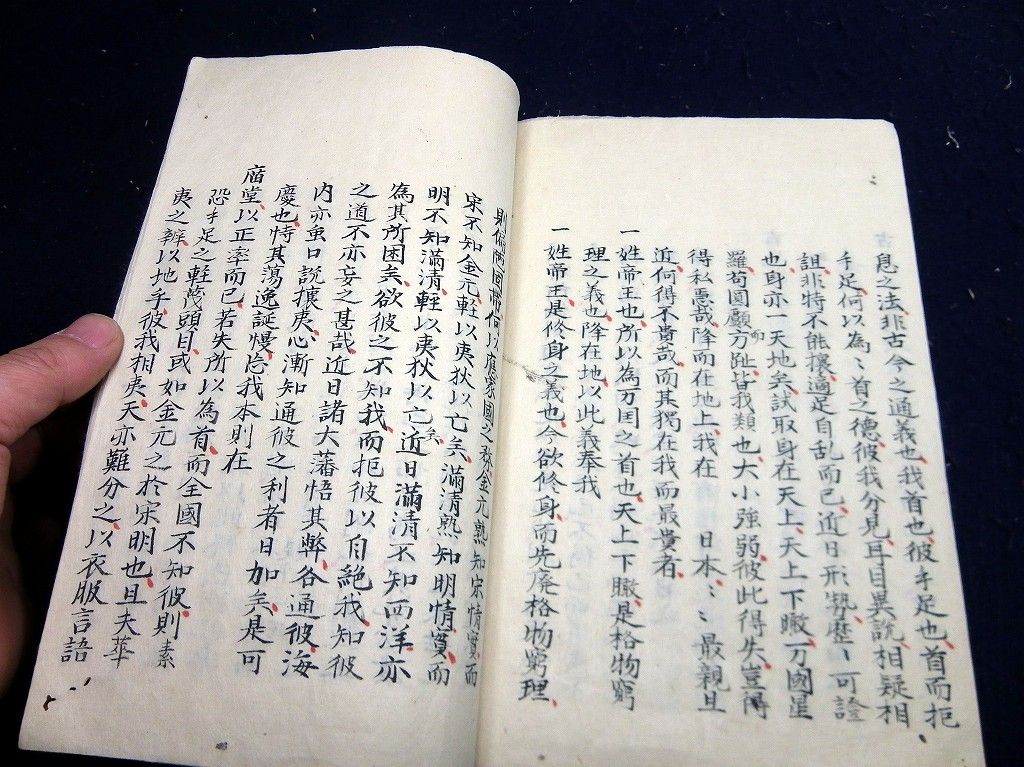 息之法非古今之通義也我首也彼手足也首而拒
手足何以為〻首之德彼我分見耳目異説相疑相
詛非特不能攘適足自乱而已近日形勢歴〻可證
也身亦一天地矣試取身在天上天上下瞰万國星
羅苟圓顱而方趾皆我類也大小強弱彼此得失豈得
得私悪哉降而在地上我在 日本〻〻最親且
近何得不貴哉而其獨在我而最貴有
一姓帝王也所以為万国之首也天上下瞰是格物窮
理之義也降在地以此義奉我
一姓帝王是修身之義也今欲修身而先廃格物窮理
則偏国何以應家國之金元熟知宋情實而
宋不知金元軽以夷狄以亡矣滿清熟知明情實而
明不知滿清軽以夷狄以亡矣近日滿清不知西洋亦
為其所困矣欲彼之不知我而拒彼以自絶我知彼
之道不亦妄之甚哉近日諸大藩悟其弊各通彼海
内亦虽口説攘夷心漸知通彼之利者日加矣是可
慶也恃其蕩逸誕慢忘我本則在
廟堂以正率而已若失所以為首而全國不知彼則素
恐手足之軽蔑頭目或如金元之於宋明也且夫華
夷之辨以地乎彼我相夷天亦難分之以衣服言語